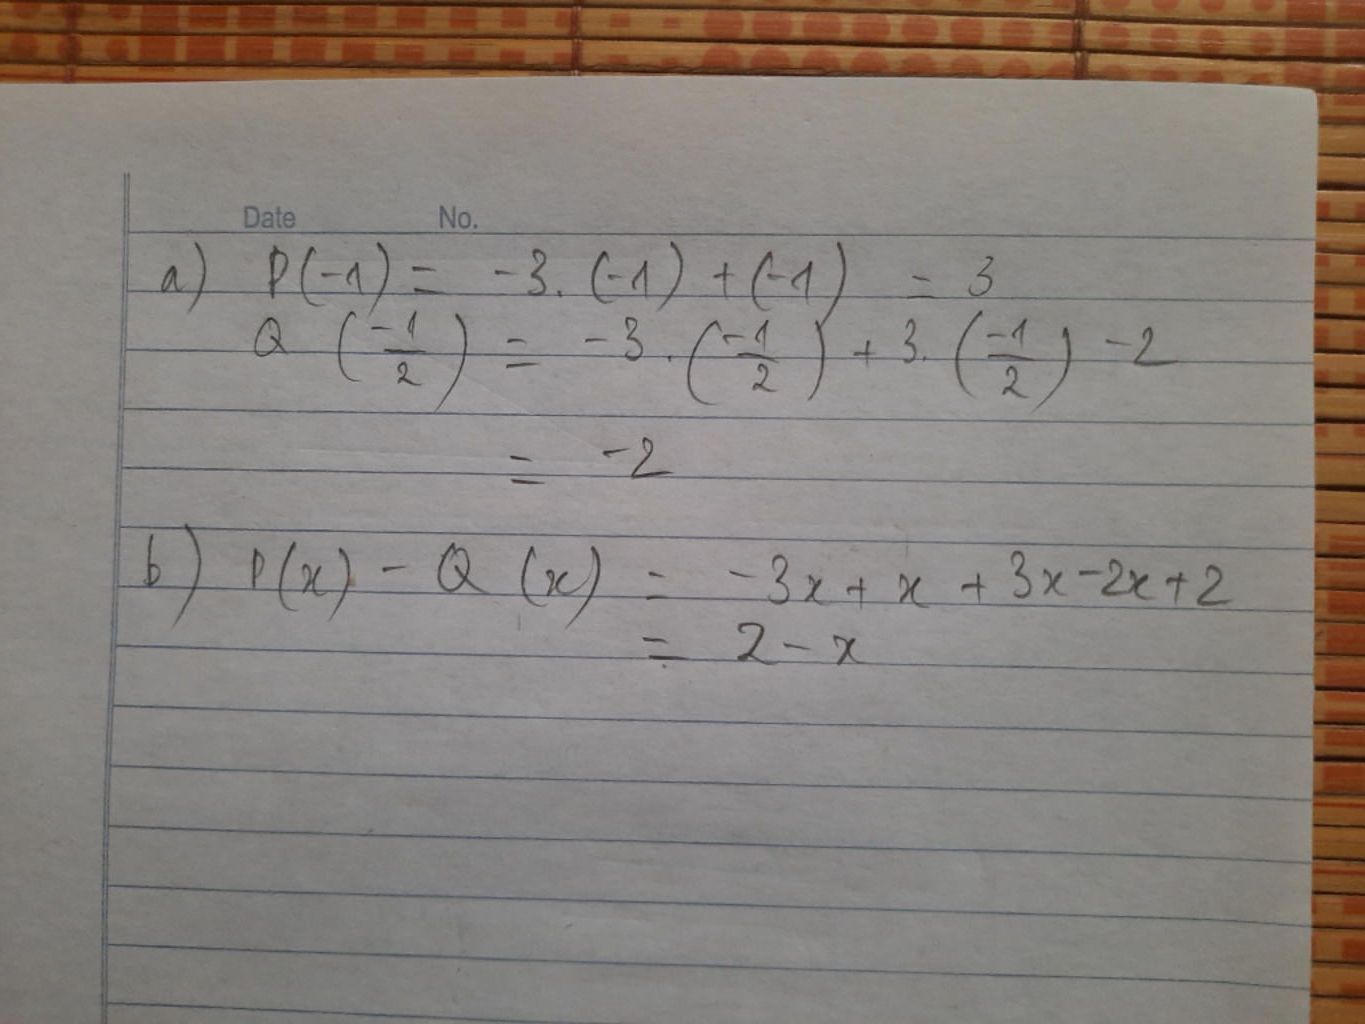 Date No.
a) P(-1) = -3. (-1) + (-1) = 3
Q (-1/2) = -3. (-1/2) + 3. (-1/2) -2
= -2
b) P(x) - Q (x) = -3x + x + 3x -2x +2
= 2 - x